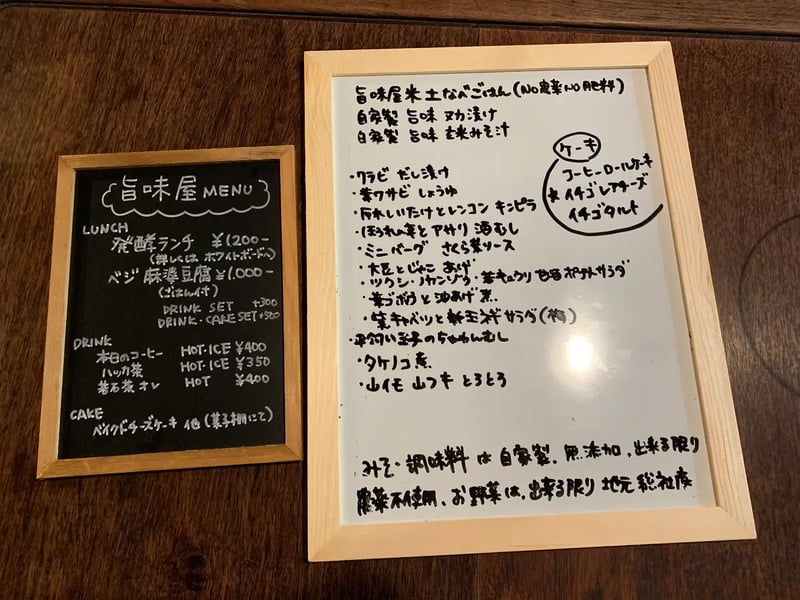 旨味屋 MENU
LUNCH
発酵ランチ ¥1200-
(詳しくは ホワイトボードへ)
ベジ 麻婆豆腐 ¥1.000-
(ごはん付)
DRINK SET +300
DRINK・CAKE SET +500
DRINK
本日のコーヒー HOT・ICE ¥400
ハッカ茶 HOT・ICE ¥350
番茶 オレ HOT ¥400
CAKE
ベイクドチーズケーキ 他 (菓子棚にて)
旨味屋米 土なべごはん (NO農薬 NO肥料)
自家製 旨味 ヌカ漬け
自家製 旨味 玄米みそ汁
ケーキ
コーヒーロールケーキ
★イチゴレアチーズ
イチゴタルト
・ワラビ だし漬け
・葉ワサビ しょうゆ
・原木しいたけとレンコン キンピラ
・ほうれん草と アサリ 酒むし
・ミニバーグ さくら葉ソース
・大豆とじゃこ あげ
・ツクシ・ノカンゾウ・若キュウリ ポテトサラダ
・葉ゴボウと油あげ 煮
・紫キャベツと新玉ネギ サラダ
・平飼い玉子のちゃわんむし
・タケノコ煮
・山イモ 山フキ とろとろ
みそ・調味料 は 自家製、無添加、出来る限り
農薬不使用、お野菜は、出来る限り 地元 総社産